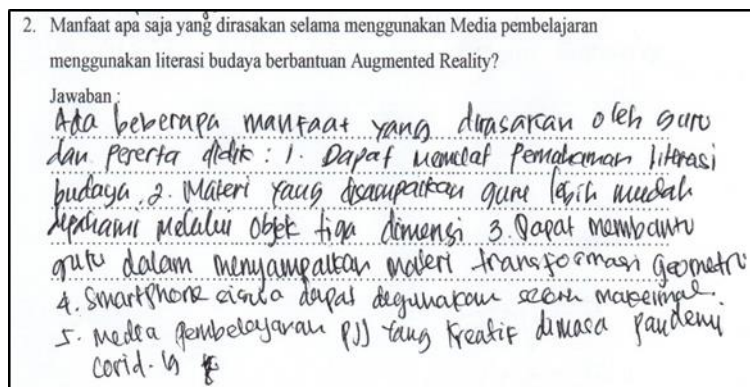 2. Manfaat apa saja yang dirasakan selama menggunakan Media pembelajaran
menggunakan literasi budaya berbantuan Augmented Reality?
Jawaban :
Ada beberapa manfaat yang dirasakan oleh guru
dan peserta didik : 1. Dapat pemahaman literasi
budaya. 2. Materi yang disampaikan guru lebih mudah
dipahami melalui objek tiga dimensi 3. Dapat membantu
guru dalam menyampaikan materi transformasi geometri
4. Smartphone siswa dapat digunakan secara maksimal.
5. Media pembelajaran PJJ yang kreatif dimasa pandemi
covid-19